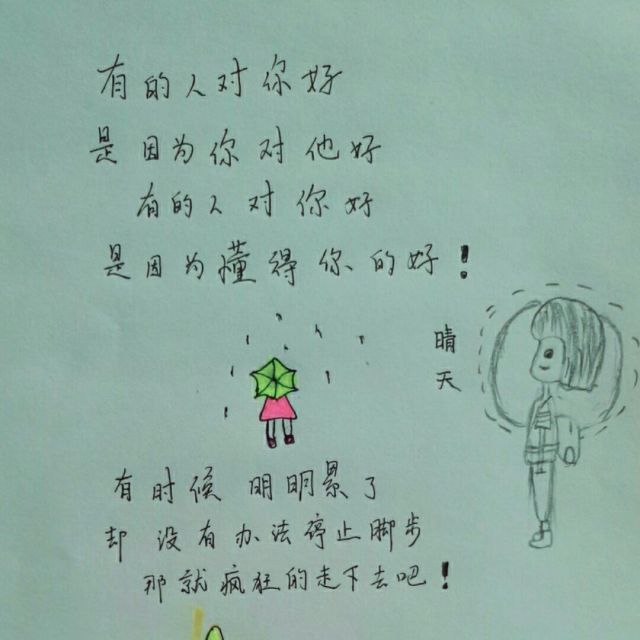 有的人对你好
是因为你对他好
有的人对你好
是因为懂得你的好！
晴
天
有时候明明累了
却没有办法停止脚步
那就疯狂的走下去吧！